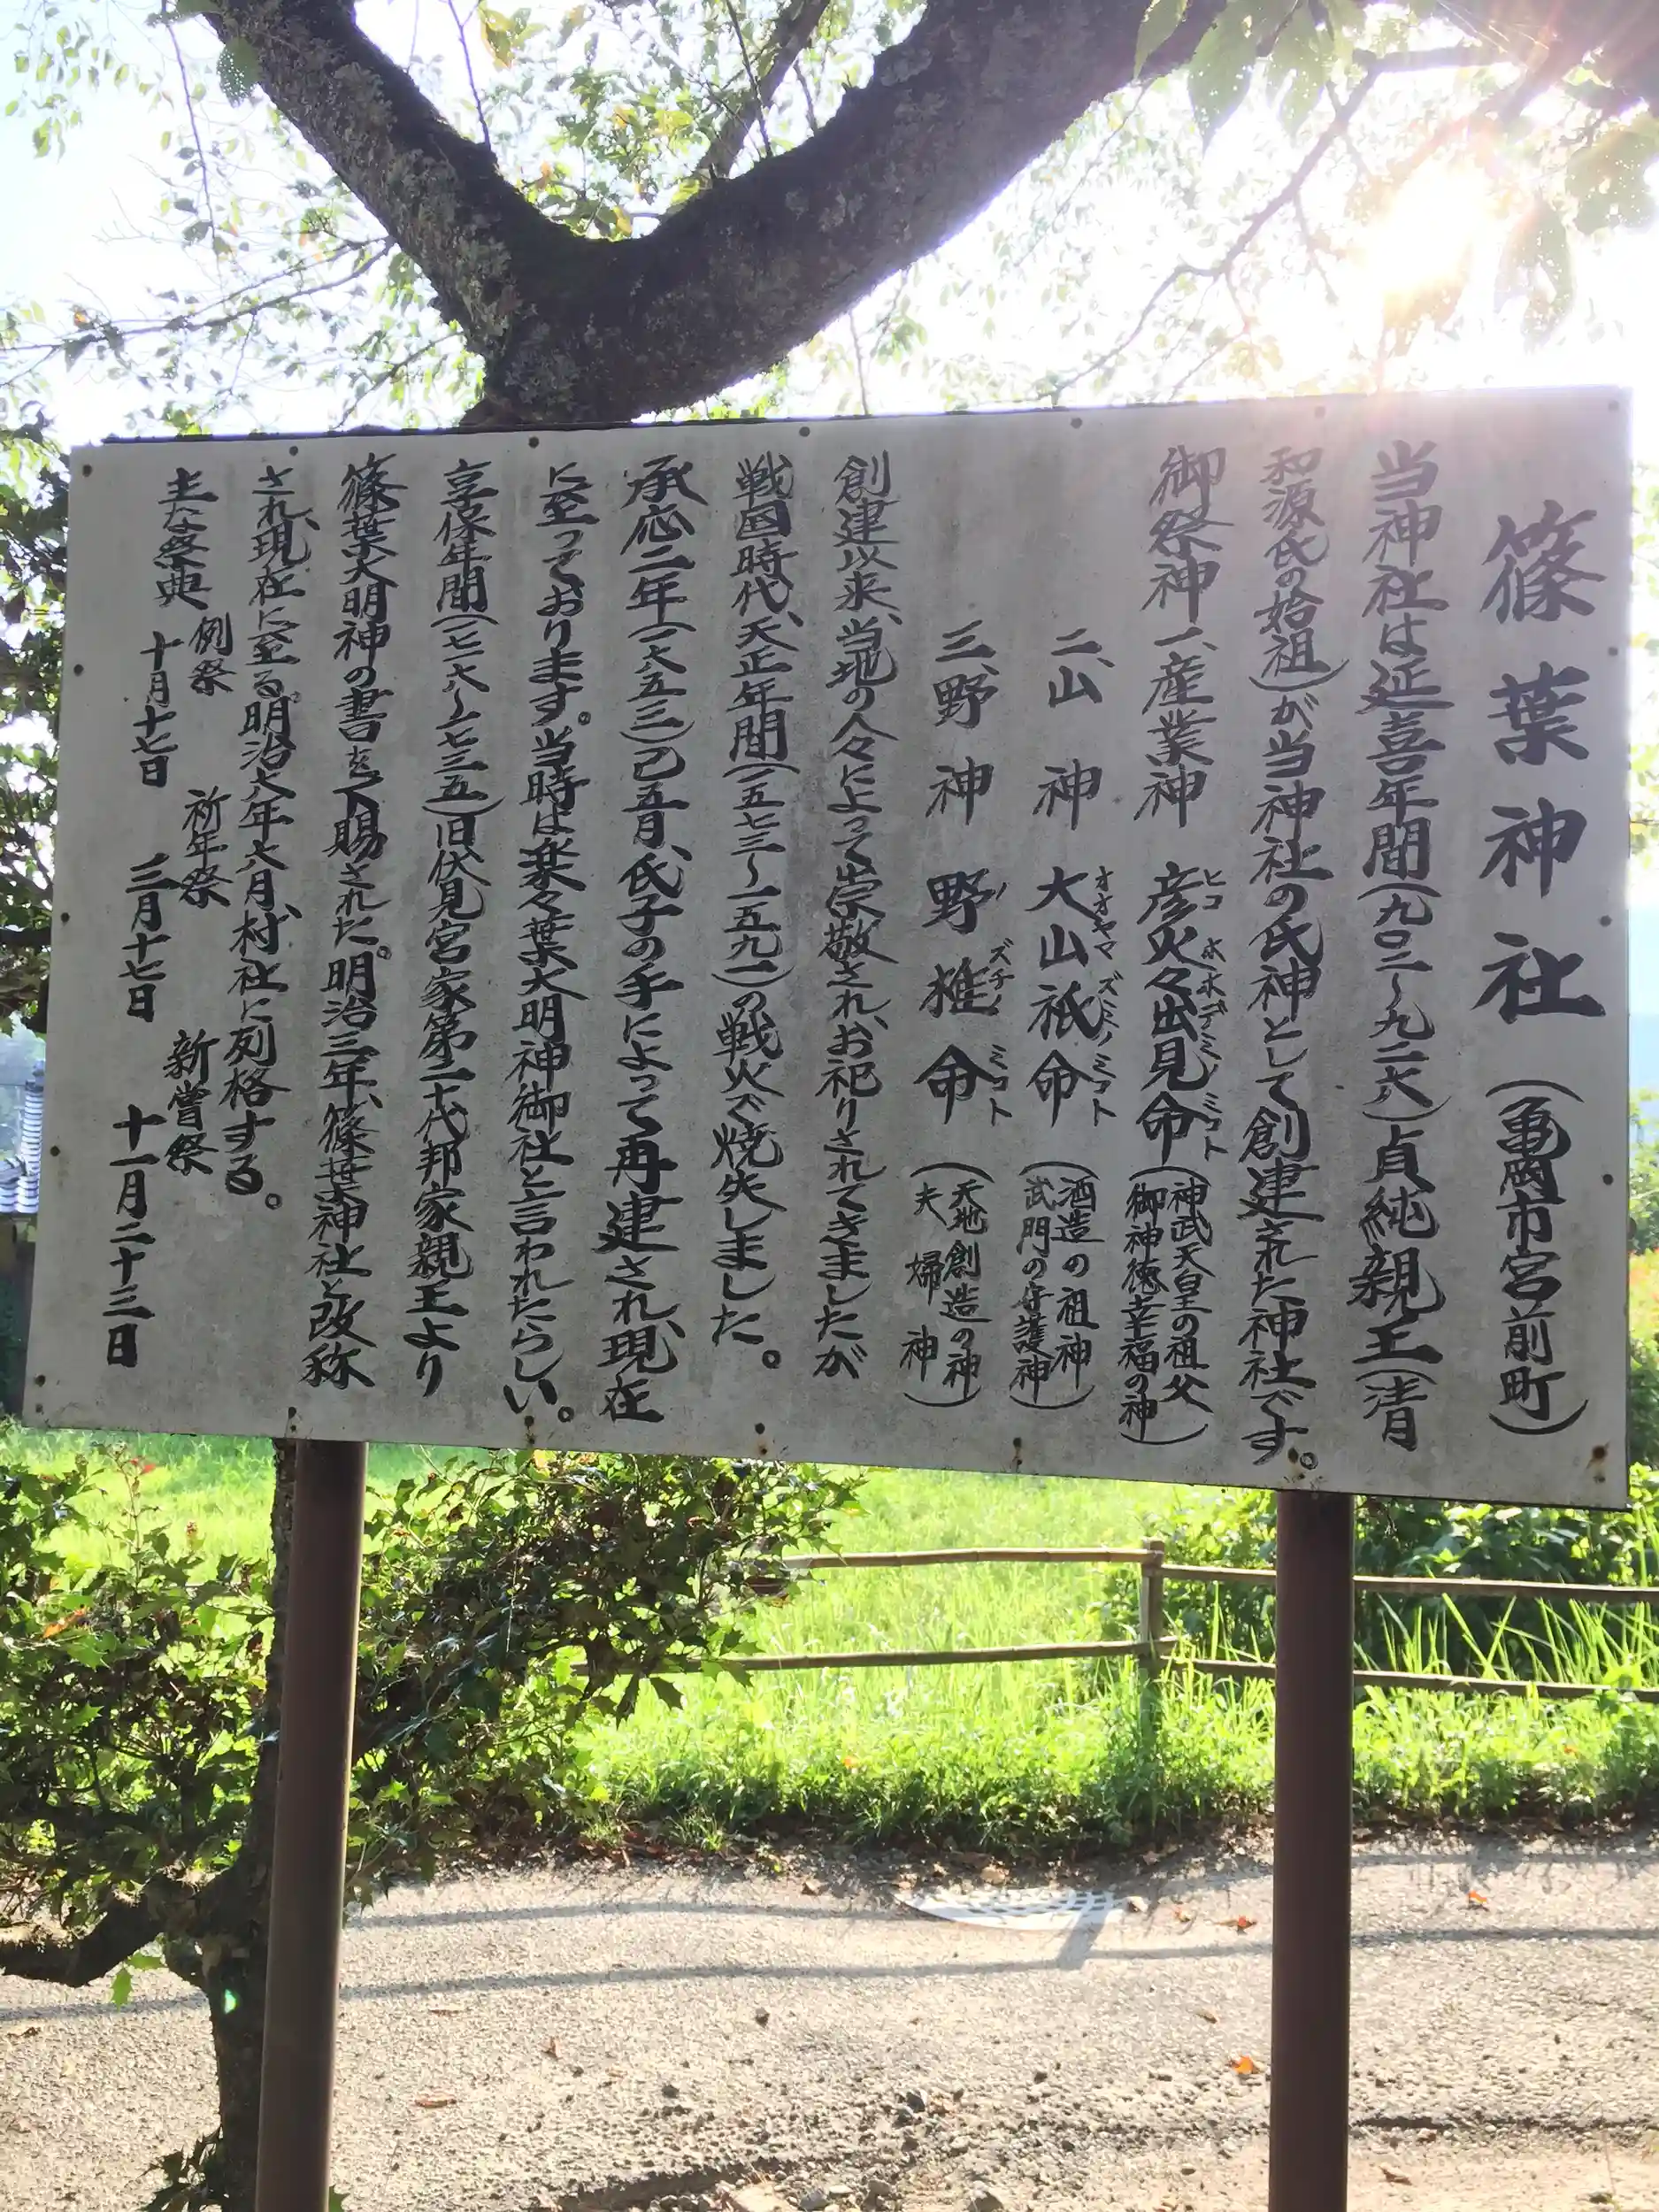 篠葉神社（亀岡市宮前町）
当神社は延喜年間（九〇二〜九二六）貞純親王（清
和源氏の始祖）が当神社の氏神として創建された神社です。
御祭神 一、産業神 彦火々出見命（神武天皇の祖父 御神徳幸福の神）
ヒコ ホホデミノミコト
二、山神 大山祇命（酒造の祖神 武門の守護神）
オオヤマズミノミコト
三、野神 野椎命（天地創造の神 夫婦神）
ノズチノミコト
創建以来、当地の人々によって崇敬され、お祀りされてきましたが
戦国時代、天正年間（一五七三〜一五九一）の戦火で焼失しました。
承応二年（一六五三）己五月、氏子の手によって再建され、現在
に至っております。当時は楽々葉大明神御社と言われたらしい。
享保年間（一七一六〜一七三五）旧伏見宮家第二十代邦家親王より
篠葉大明神の書を下賜された。明治三年、篠葉神社と改称
され、現在に至る。明治六年六月、村社に列格する。
主な祭典 例祭 十月十七日 祈年祭 三月十七日 新嘗祭 十一月二十三日